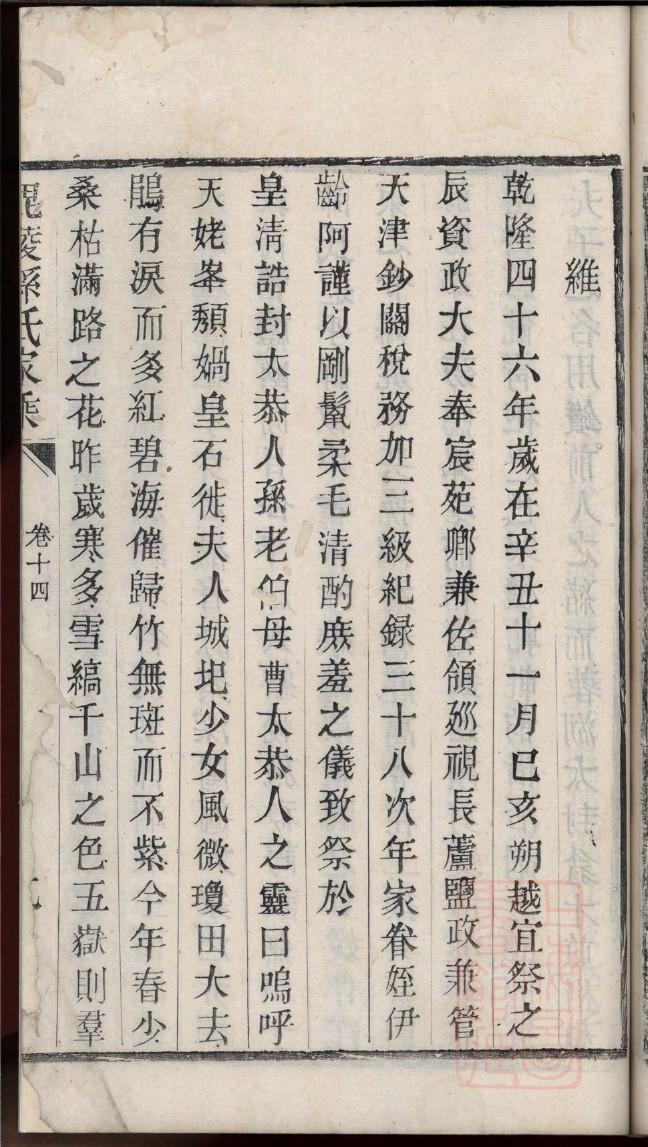 維
乾隆四十六年歲在辛丑十一月己亥朔越宜祭之
辰資政大夫奉宸苑卿兼佐領廵視長蘆鹽政兼管
天津鈔關稅務加三級紀録三十八次年家眷姪伊
齡阿謹以剛鬣柔毛清酌庶羞之儀致祭於
皇清誥封太恭人孫老伯母曹太恭人之靈曰嗚呼
天姥峯頽媧皇石徙夫人城圯少女風微瓊田大去
鵑有淚而多紅碧海催歸竹無斑而不紫今年春少
桑枯滿路之花昨歲寒多雪縞千山之色五嶽則羣
毘陵孫氏家乘
卷十四